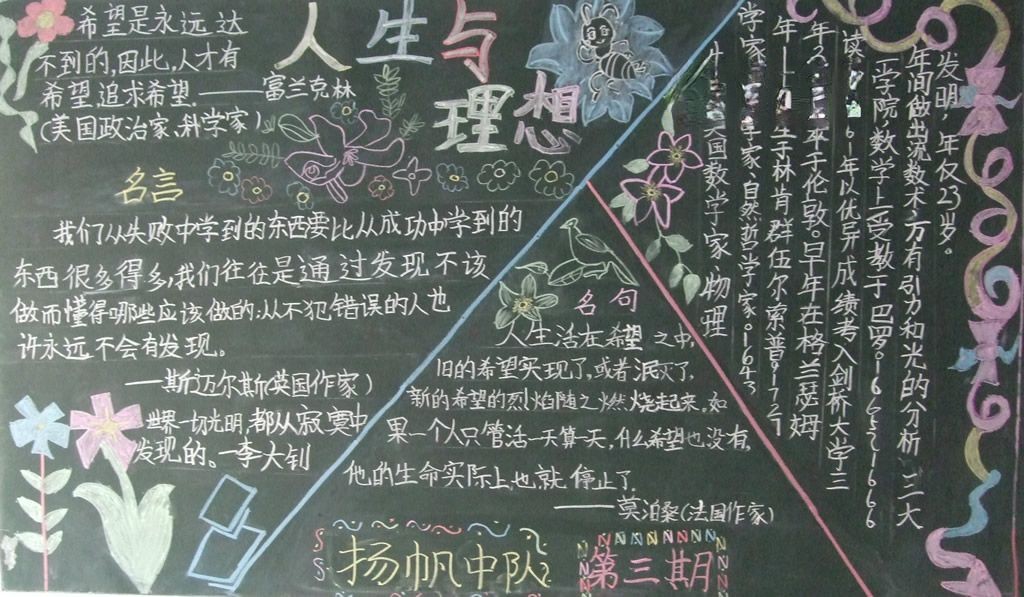 人生与
理想
希望是永远达
不到的,因此,人才有
希望,追求希望.——富兰克林
(美国政治家、科学家)
名言
我们从失败中学到的东西要比从成功中学到的
东西很多得多,我们往往是通过发现不该
做而懂得哪些应该做的;从不犯错误的人也
许永远不会有发现。
——斯迈尔斯(英国作家)
世界一切光明,都从寂寞中
发现的。—李大钊
名句
人生活在希望之中,
旧的希望实现了,或者泯灭了,
新的希望的烈焰随之燃烧起来。如
果一个人只管活一天算一天,什么希望也没有,
他的生命实际上也就停止了.
——莫泊桑(法国作家)
国数学家物理
学家、自然哲学家。1643
年1生于林肯群伍尔索普。1727
年卒于伦敦。早年在格兰瑟姆
读61年以优异成绩考入剑桥大学三
一学院,数学上受教于巴罗。1665~1666
年间做出流数术,万有引力和光的分析三大
发明,年仅23岁。
扬帆中队
第三期